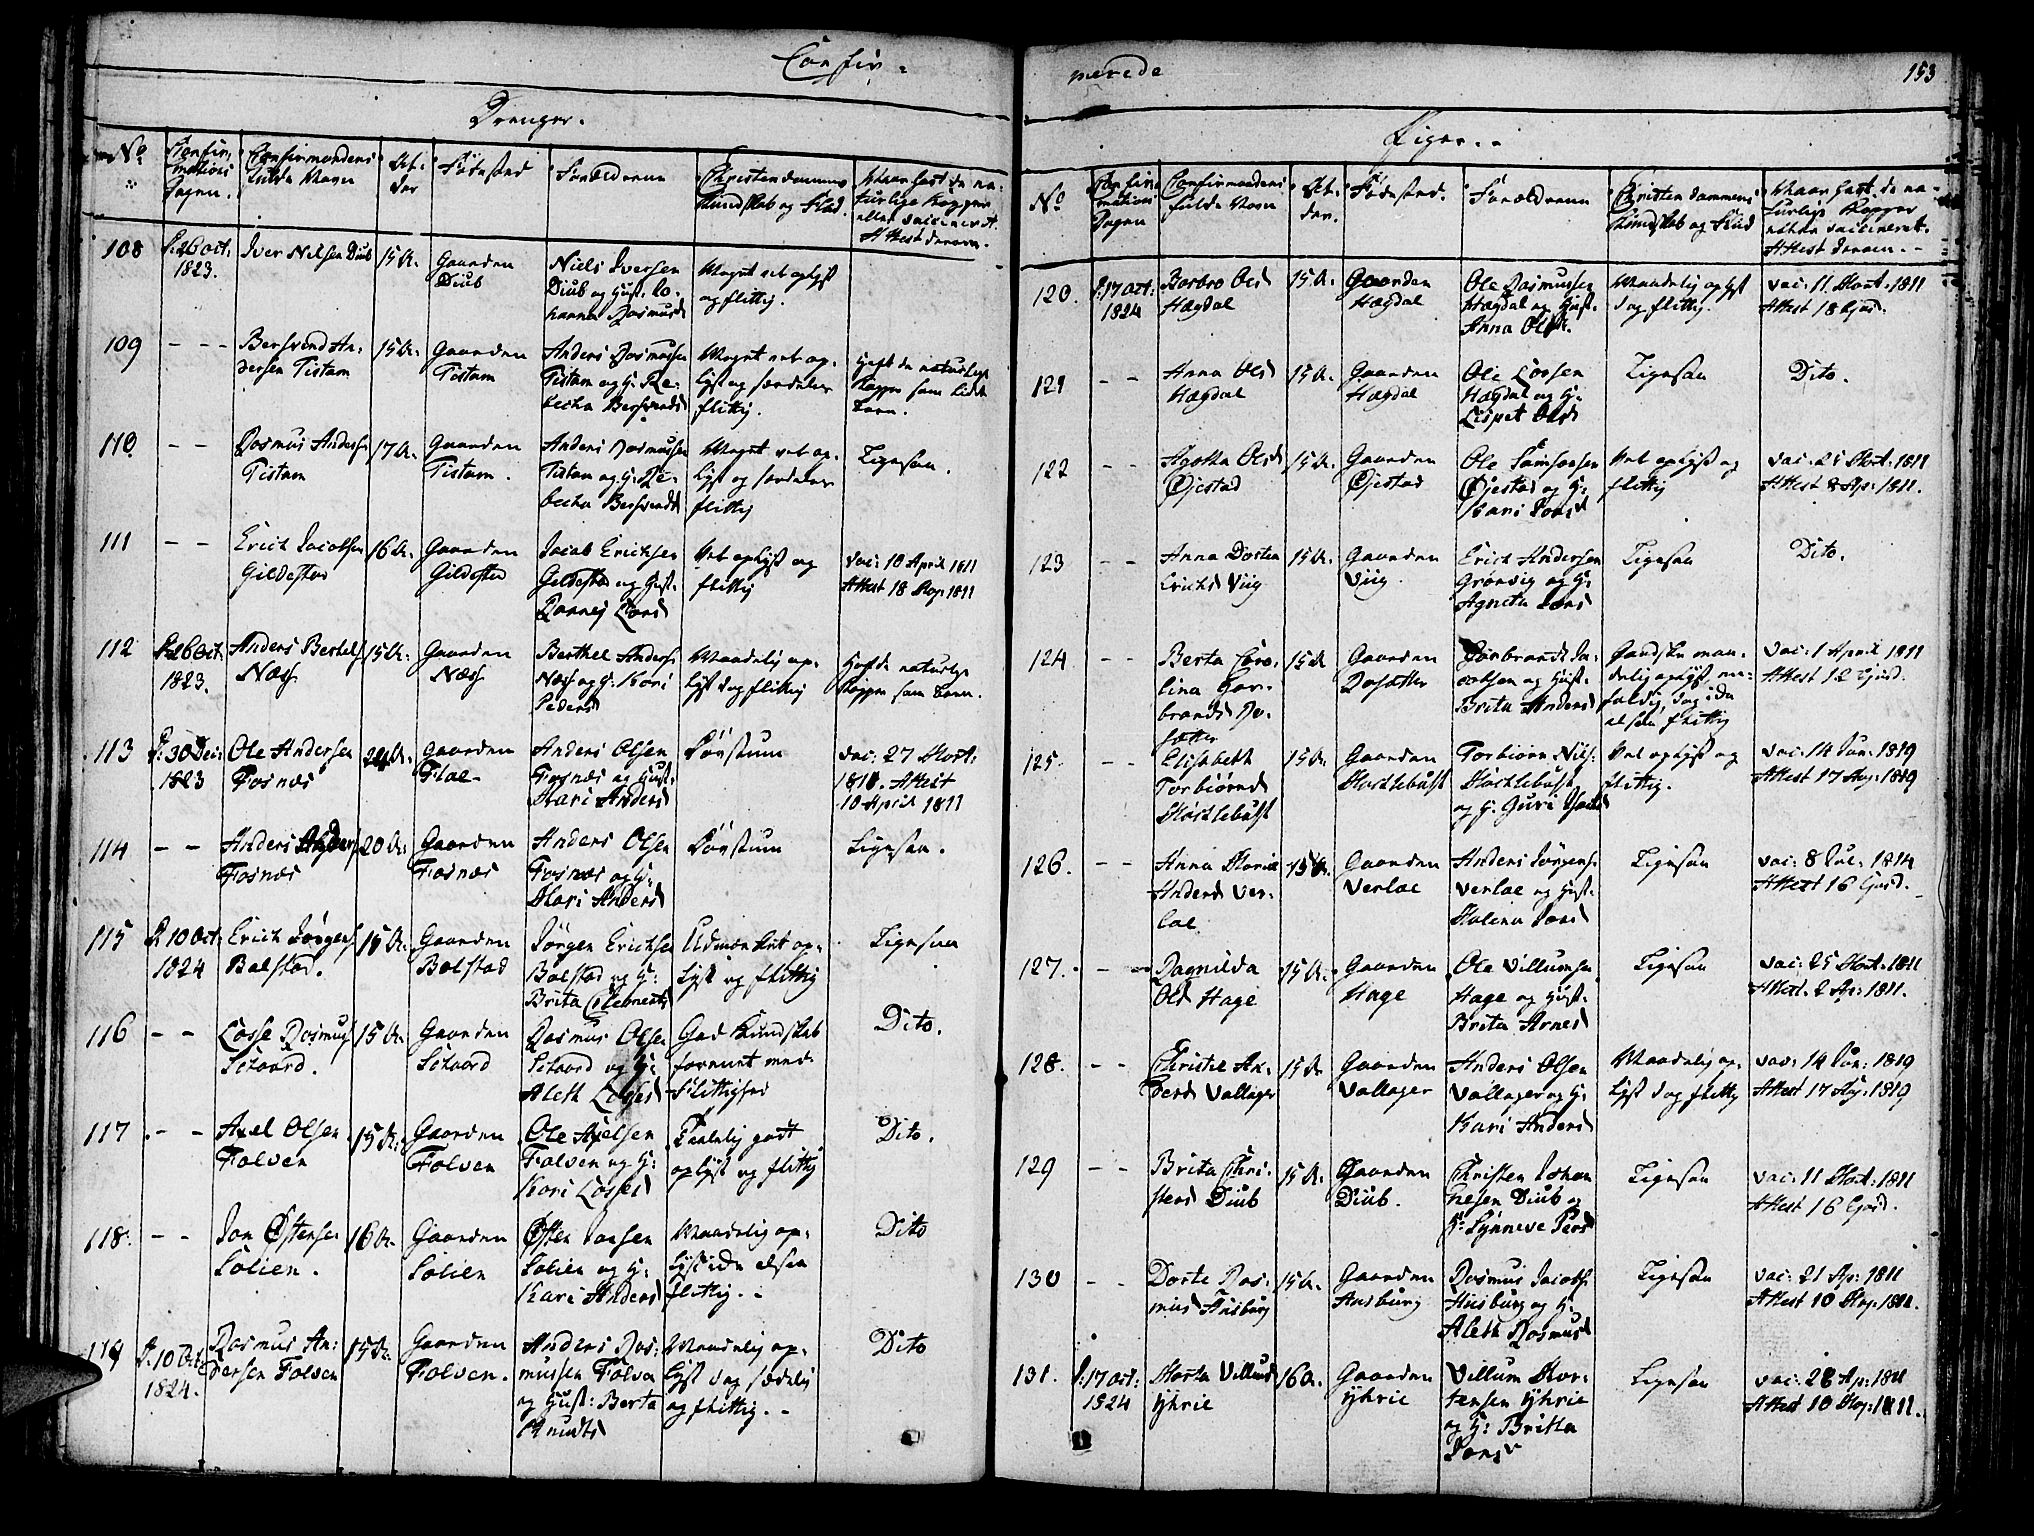 Confir-
merede
153
Drenger.
No
Confir-
mations
Dagen.
Confirmandens
fulde Navn
Al-
der
Födested
Forældrene
Christendoms
Kundskab og Flid.
Naar havt de na-
turlige Kopper
eller vaccineret.
Attest derom.
108
26 Oct:
1823.
Iver Nilsen Diub
15 A.
Gaarden
Diub
Niels Iversen
Diub og Hust. Jo-
hanna Rasmusd
Meget vel oplyst
og flittig.
109
- - -
Bersvend An-
dersen Tistam
15 A.
Gaarden
Tistam
Anders Rasmussen
Tistam og H: Re-
becka Bersvendsd
Meget vel op-
lyst og særdeles
flittig.
Havt de naturlige
Kopper som lidet
barn.
110
- -
Rasmus Anders:
Tistam
17 A.
Gaarden
Tistam.
Anders Rasmussen
Tistam og H: Re-
becka Bersvendsd
Meget vel op-
lyst og særdeles
flittig
Ligesaa.
111
- -
Erich Jacobsen
Gildestad
16 A.
Gaarden
Gildestad
Jacob Erichsen
Gildestad og Hust.
Rannej Larsd
Vel oplyst og
flittig
vac: 10 April 1811
Attest 18 Aug: 1811
112
26 Oct.
1823.
Anders Berthels
Næss
15 A.
Gaarden
Næss
Berthel Anders:
Næss og H: Kari
Pedersd
Maadelig op-
lyst dog flittig
Havt de naturlige
Kopper som barn.
113
30 Dec:
1823
Ole Andersen
Fosnæs
24 A.
Gaarden
Flae
Anders Olsen
Fosnæs og Hust.
Mari Andersd
Dövstum
vac: 27 Mart:
1811. Attest
10 April 1811
114
- -
Anders Anders:
Fosnæs
20 A.
Gaarden
Fosnæs
Anders Olsen
Fosnæs og H:
Mari Andersd
Dövstum
Ligesaa.
115
10 Oct:
1824
Erich Jörgens:
Balstad.
15 A.
Gaarden
Balstad
Jörgen Erichsen
Balstad og H:
Brita Clemetsd
Udmærket op-
lyst og flittig
Ligesaa
116
- -
Lasse Rasmus
Sætaard.
15 A.
Gaarden
Sætaard
Rasmus Olsen
Sætaard og H:
Aleth Lassesd
God Kundskab
forenet med
Flittighed
Dito.
117
- -
Axel Olsen
Folven
15 A.
Gaarden
Folven
Ole Axelsen
Folven og H:
Kari Lassesd
Taalelig godt
oplyst og flittig
Dito.
118.
- -
Jon Østensen
Solien.
16 A.
Gaarden
Solien
Østen Jonsen
Solien og H:
Kari Andersd
Maadelig op-
lyst ikke alsen
flittig. -
Dito
119
10 Oct:
1824.
Rasmus An-
dersen Folven
15 A.
Gaarden
Folven.
Anders Ras-
mussen Folven
og Hust: Berta
Knudsd
Maadelig op-
lyst dog sædelig
og flittig. -
Dito
Piger. -
No
Confir-
mations
Dagen
Confirmandens
fulde Navn
Al-
der.
Födested.
Forældrene
Christendommens
Kundskab og Flid
Naar havt de na-
turlige Kopper
eller vaccineret.
Attest derom. -
120.
17 Oct:
1824
Barbro Olsd
Hægdal
15 A.
Gaarden
Hægdal
Ole Rasmussen
Hægdal og Hust.
Anna Olsd.
Maadelig oplyst
dog flittig.
vac: 11 Mart: 1811
Attest 18 Ejusd.
121
- -
Anna Olsd
Hægdal
15 A.
Gaarden
Hægdal
Ole Larsen
Hægdal og H:
Lispet Olsd
Ligesaa
Dito.
122
- -
Agatha Olsd
Øjestad
15 A.
Gaarden
Øjestad
Ole Samsonsen
Øjestad og H:
Kari Jonsd
Vel oplyst og
flittig
vac: 25 Mart: 1811
Attest 2 Ap: 1811.
123
- -
Anna Dortea
Erichsd Viig
15 A.
Gaarden
Viig.
Erich Andersen
Grönvig og H:
Agneta Larsd
Ligesaa
Dito.
124
- -
Berta Caro-
lina Gar-
brandsd Ro-
sætter
15 A
Gaarden
Rosætter
Garbrandt Ja-
cobsen og Hust.
Brita Andersd
Gandske maa-
delig oplyst, en-
foldig, dog ikke
alsen flittig
vac: 1 April 1811
Attest 12 Ejusd.
125.
- -
Elisabeth
Torbiörnsd
Mochlebust
15 A.
Gaarden
Mochlebust
Torbiörn Niels:
Mochlebust
og H: Guri Isacsd
Vel oplyst og
flittig.
vac: 14 Jun: 1819
Attest 17 Aug: 1819
126.
- -
Anna Maria
Andersd Ver-
lae
15 A.
Gaarden
Verlae
Anders Jörgens:
Verlae og Hust.
Malena Jonsd
Ligesaa
vac: 8 Jul: 1814
Attest 16 Ejusd.
127.
- -
Ragnilda
Olsd Hage
15 A.
Gaarden
Hage
Ole Villumsen
Hage og Hust.
Brita Arnesd
Ligesaa
vac: 25 Mart: 1811
Attest. 2 Ap: 1811.
128.
- -
Christie An-
dersd Vollager
15 A
Gaarden
Vollager
Anders Olsen
Vollager og H:
Kari Andersd
Maadelig op-
lyst dog flittig
vac: 14 Jun: 1819
Attest 17 Aug: 1819
129
- -
Brita Chri-
stensd Diub
15 A.
Gaarden
Diub.
Christen Johan-
nesen Diub og
H: Synneve Persd
Ligesaa
vac: 11 Mart: 1811
Attest 16 Ejusd.
130
- -
Dorte Ras-
musd Husburg
15 A.
Gaarden
Husburg
Rasmus Jacobs:
Husburg og H:
Aleth Rasmusd
Ligesaa
vac: 21 Ap: 1811
Attest 10 Aug: 1811.
131.
17 Oct:
1824
Marta Villumsd
Yhrie
16 A.
Gaarden
Yhrie
Villum Mor-
tensen Yhrie
og H: Britta
Jonsd
Ligesaa
vac: 28 Ap: 1811
Attest 10 Aug: 1811.